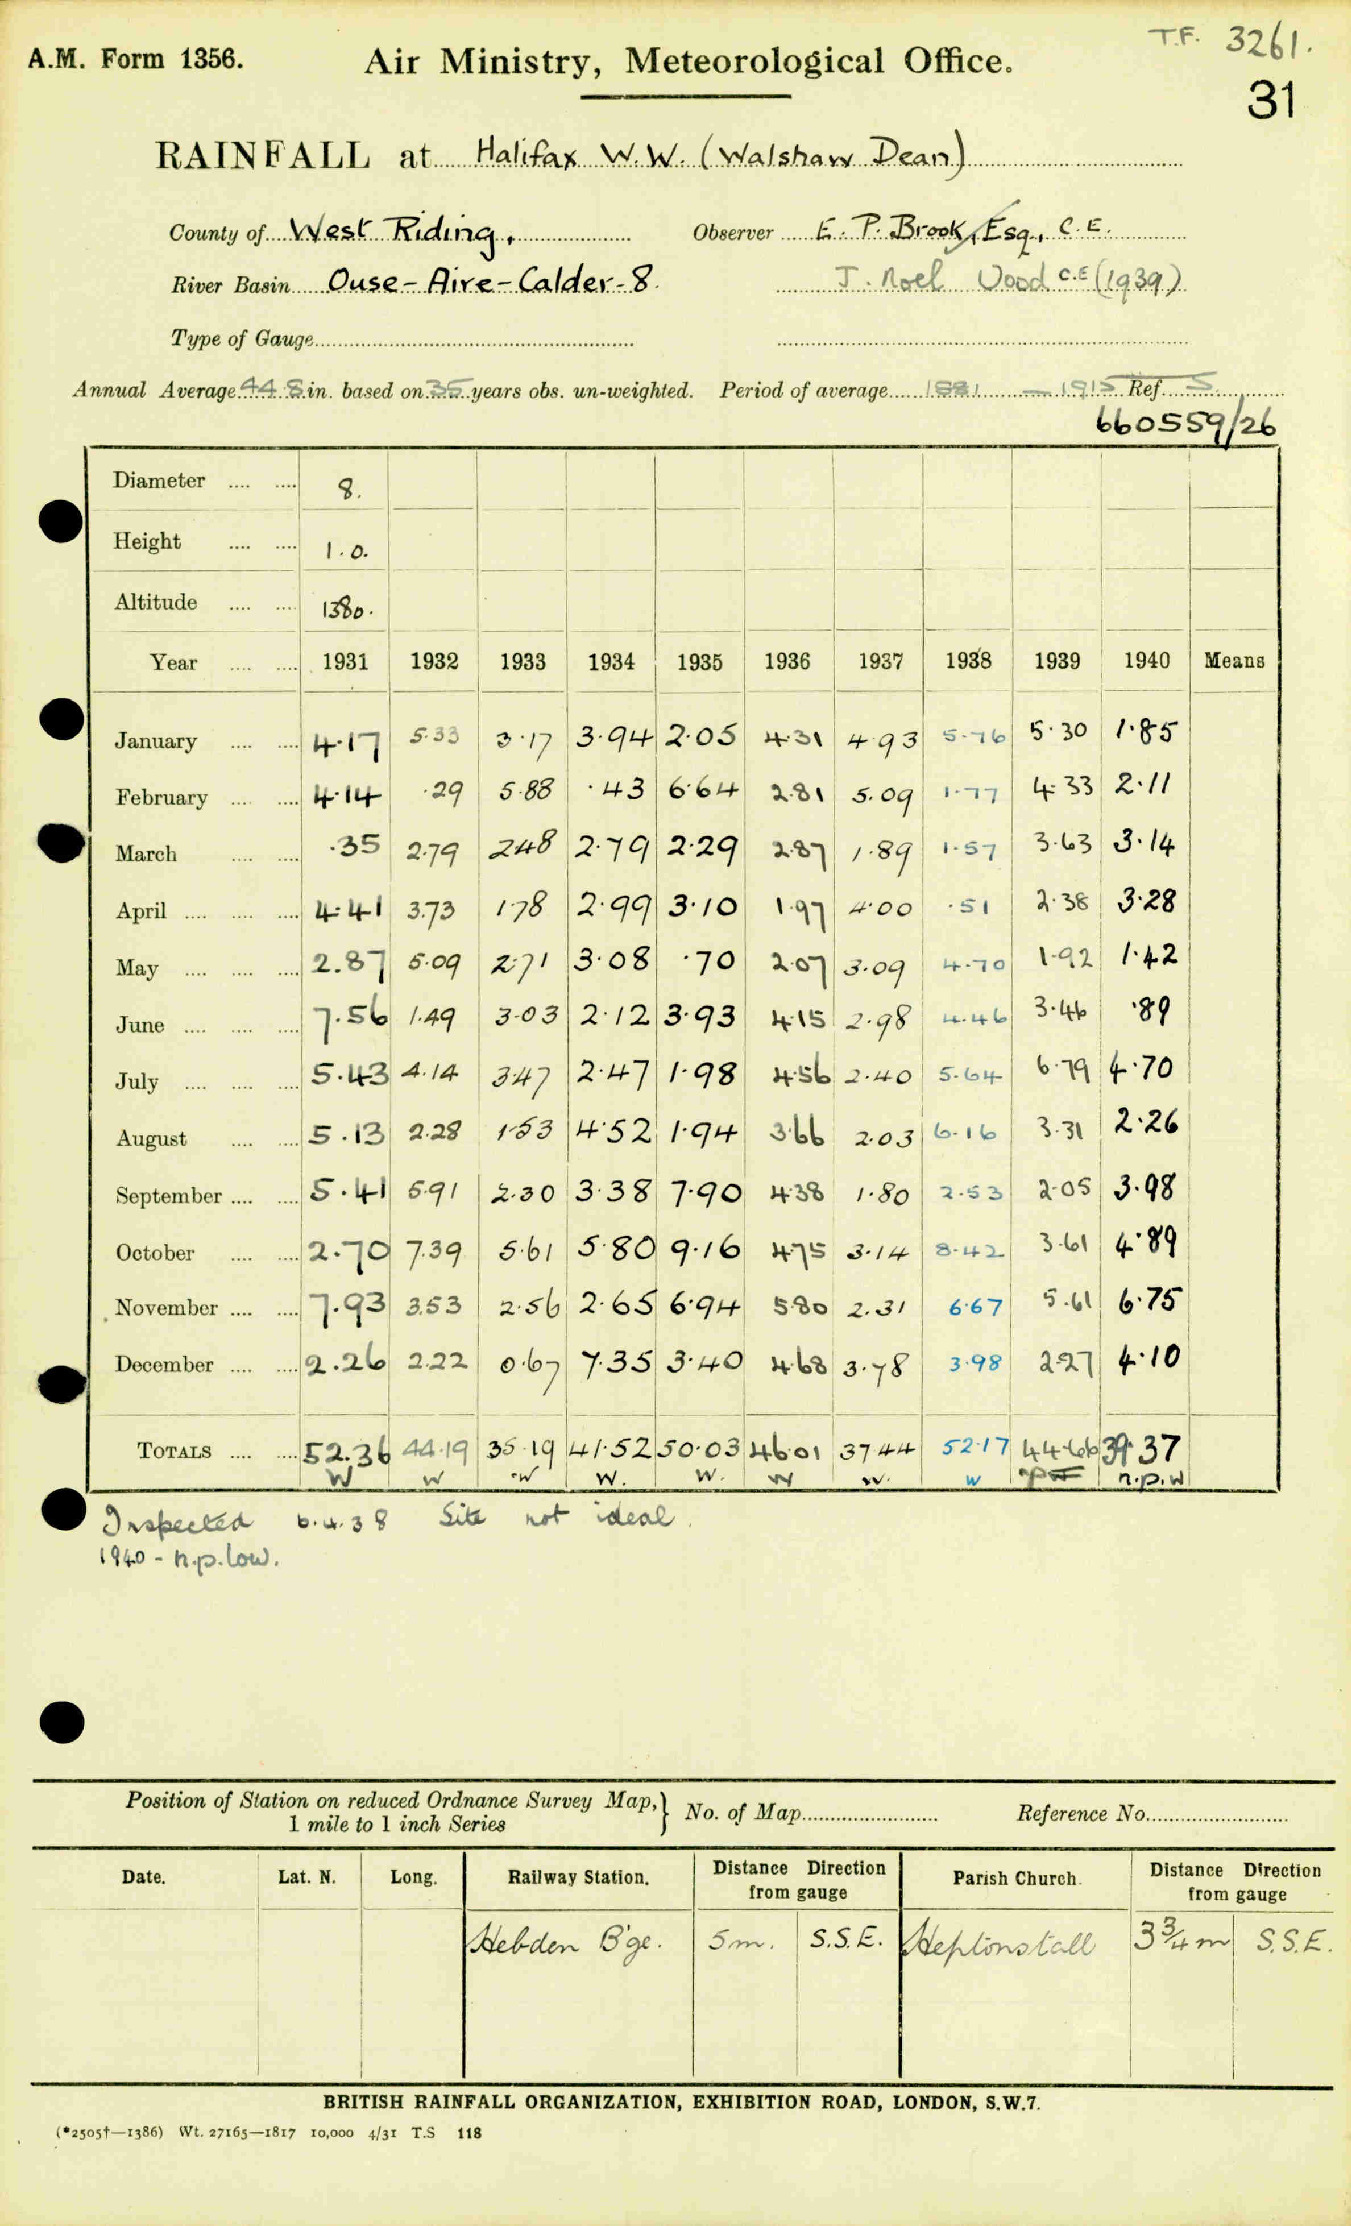 T.F. 3261.
A.M. Form 1356. Air Ministry, Meteorological Office.
31
RAINFALL at Halifax W.W. (Walshaw Dean)
County of West Riding, Observer E. P. Brook, Esq., C.E.
River Basin Ouse-Aire-Calder-8. J. Noel Wood C.E (1939)
Type of Gauge
Annual Average 44.8 in. based on 35 years obs. un-weighted. Period of average 1881 — 1915 Ref. 5.
660559/26
Diameter 8.
Height 1.0.
Altitude 1380.
Year 1931 1932 1933 1934 1935 1936 1937 1938 1939 1940 Means
January 4.17 5.33 3.17 3.94 2.05 4.31 4.93 5.76 5.30 1.85
February 4.14 .29 5.88 .43 6.64 2.81 5.09 1.77 4.33 2.11
March .35 2.79 2.48 2.79 2.29 2.87 1.89 1.57 3.63 3.14
April 4.41 3.73 1.78 2.99 3.10 1.97 4.00 .51 2.38 3.28
May 2.87 5.09 2.71 3.08 .70 2.07 3.09 4.70 1.92 1.42
June 7.56 1.49 3.03 2.12 3.93 4.15 2.98 4.46 3.46 .89
July 5.43 4.14 3.47 2.47 1.98 4.56 2.40 5.64 6.79 4.70
August 5.13 2.28 1.53 4.52 1.94 3.66 2.03 6.16 3.31 2.26
September 5.41 5.91 2.30 3.38 7.90 4.38 1.80 2.53 2.05 3.98
October 2.70 7.39 5.61 5.80 9.16 4.75 3.14 8.42 3.61 4.89
November 7.93 3.53 2.56 2.65 6.94 5.80 2.31 6.67 5.61 6.75
December 2.26 2.22 0.67 7.35 3.40 4.68 3.78 3.98 2.27 4.10
TOTALS 52.36 44.19 35.19 41.52 50.03 46.01 37.44 52.17 44.66 39.37
W W W W. W. W W. W n.p.w
Inspected 6.4.38 Site not ideal.
1940 - n.p. low.
Position of Station on reduced Ordnance Survey Map, 1 mile to 1 inch Series } No. of Map Reference No.
Date. Lat. N. Long. Railway Station. Distance Direction from gauge Parish Church. Distance Direction from gauge
Hebden B'ge. 5m. S.S.E. Heptonstall 3¾m S.S.E.
BRITISH RAINFALL ORGANIZATION, EXHIBITION ROAD, LONDON, S.W.7.
(*2505†—1386) Wt. 27165—1817 10,000 4/31 T.S 118